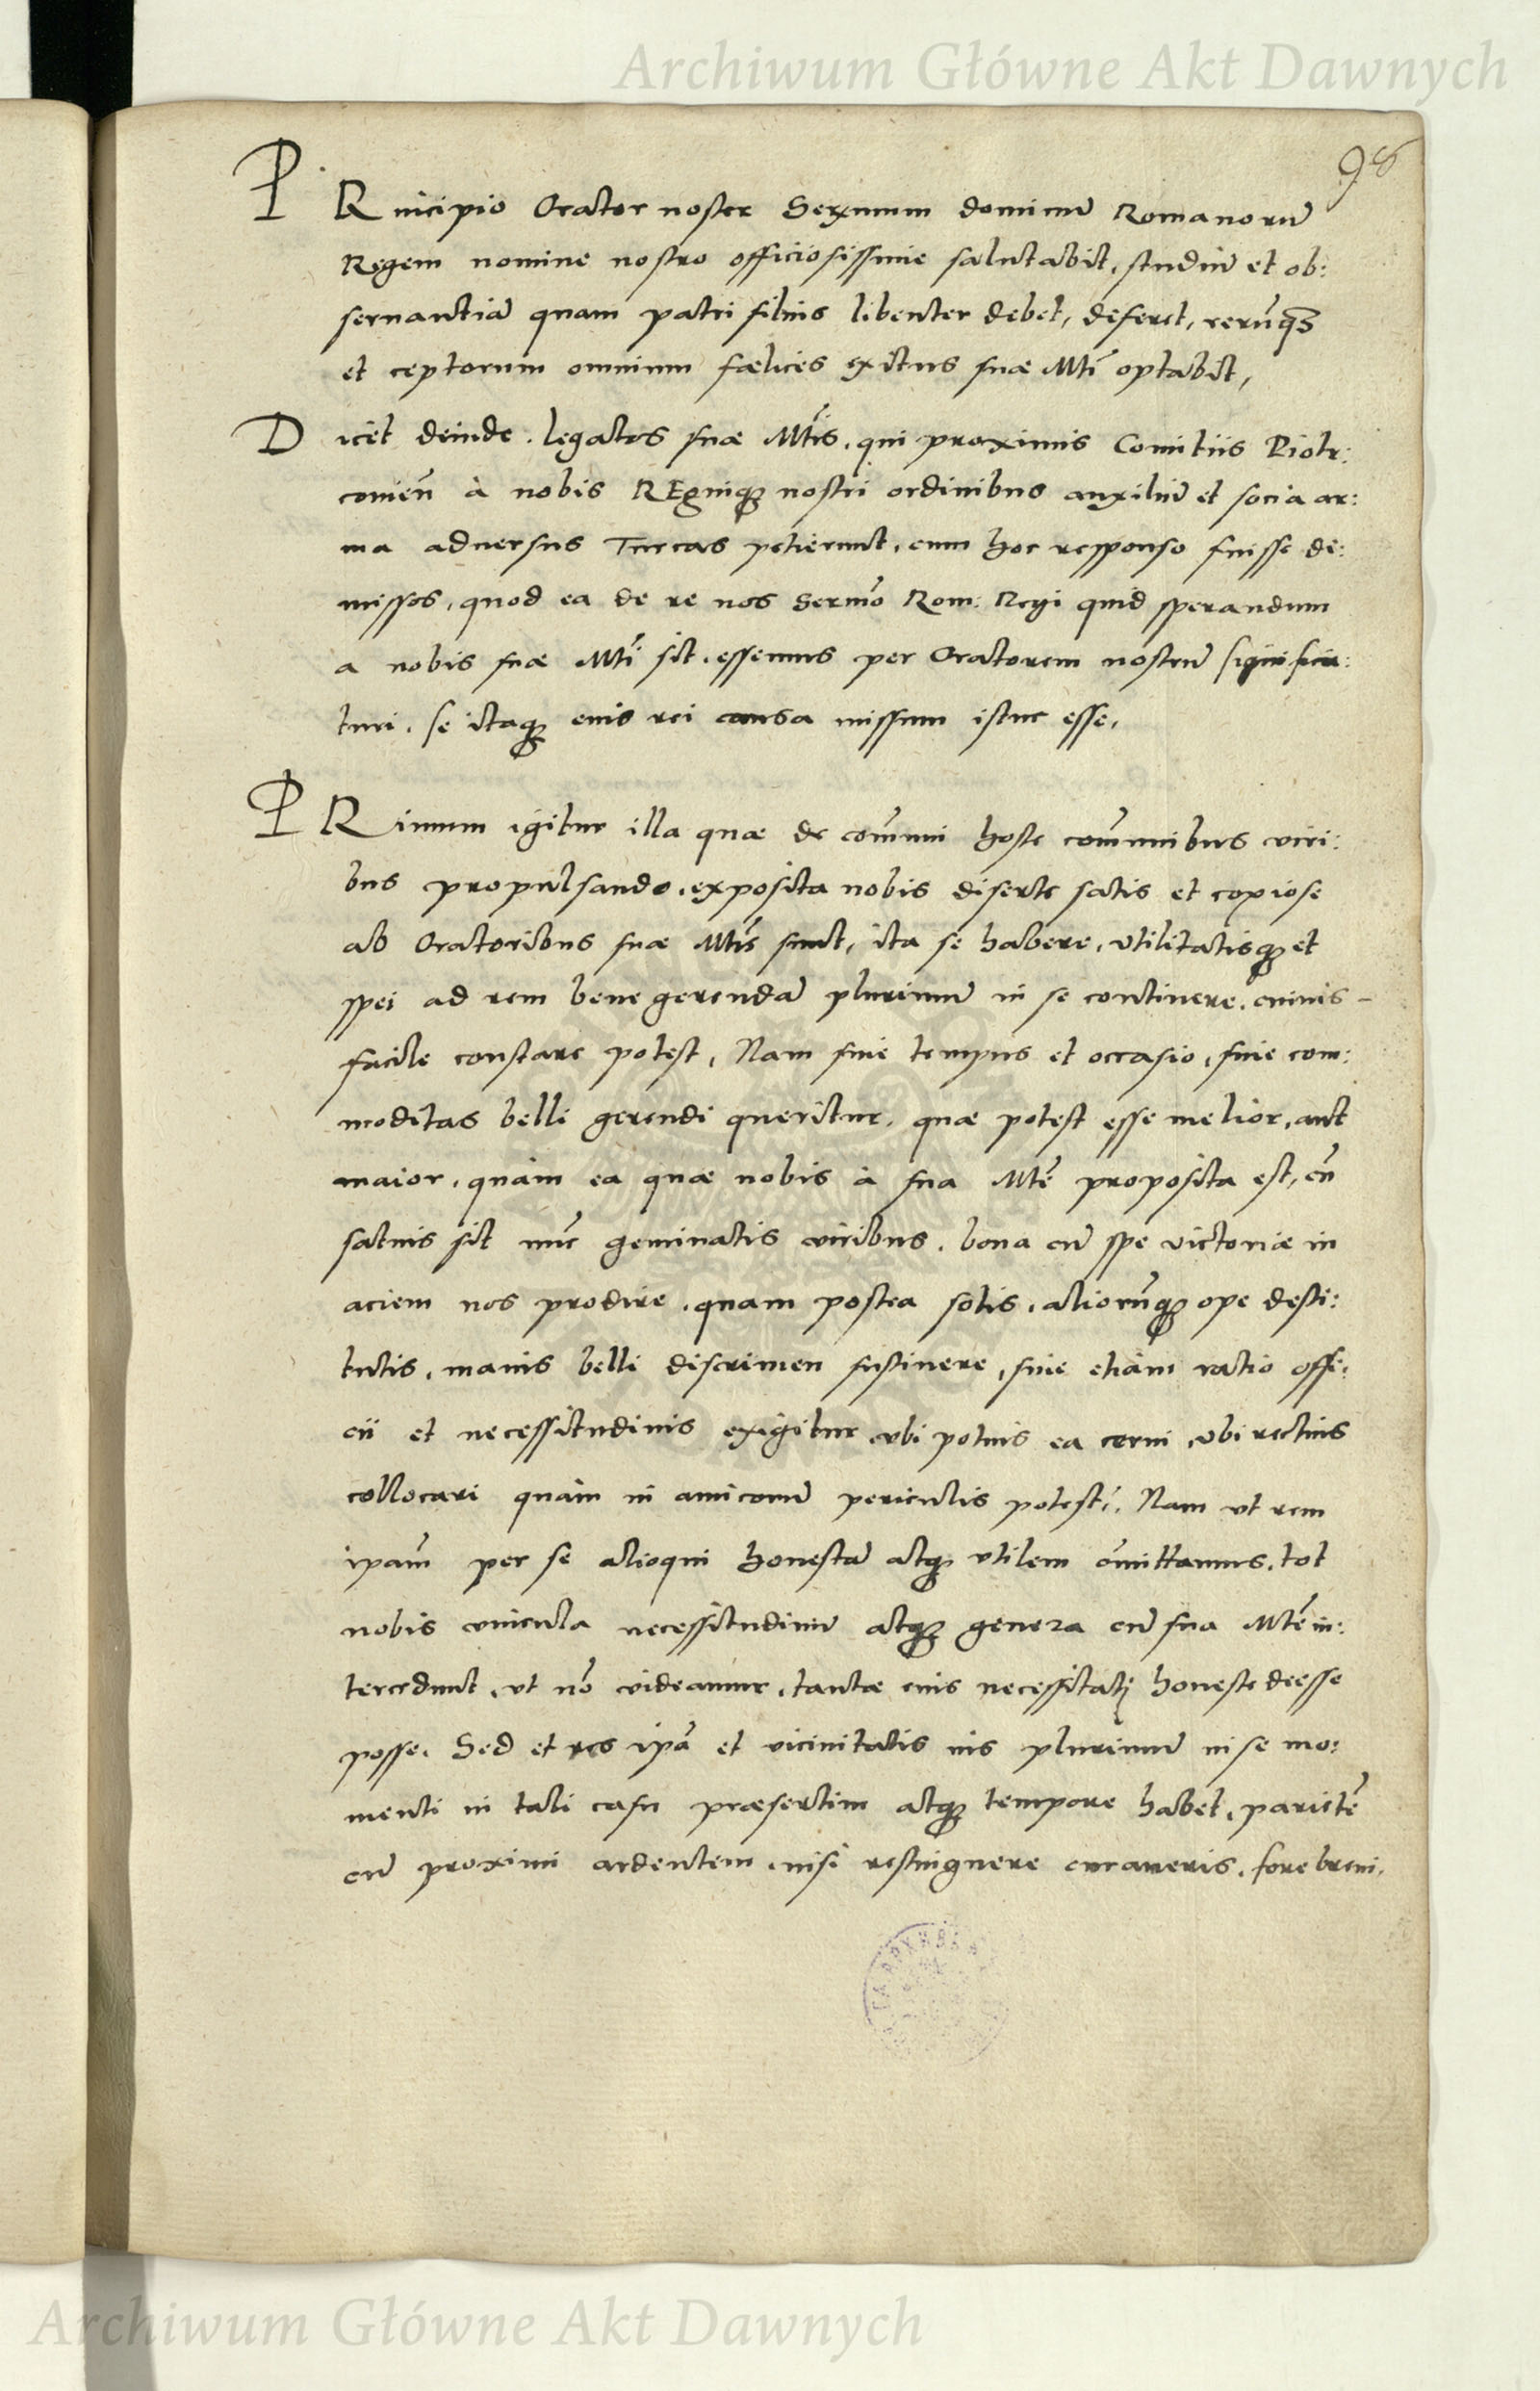 Archiwum Główne Akt Dawnych
98
PRincipio Orator noster Serenimum dominū Romanorū
Regem nomine nostro officiosissime salutabit, studiū et ob:
seruantiā quam patri filius libenter debet, deferet, rerūq3
et ceptorum omnium fœlices exitus suæ Mti optabit,
Dicet deinde. legatos suæ Mtis, qui proximis Comitiis Piotr:
couień à nobis REgniq3 nostri ordinibus auxiliū et socia ar:
ma aduersus Turcas petierunt, cum hoc responso fuisse di:
missos, quod ea de re nos Sermo Rom: Regi quid sperandum
a nobis suæ Mti sit, essemus per Oratorem nostrū significa:
turi. se itaq3 eius rei causa missum istuc esse,
PRimum igitur illa quæ de com̄uni hoste com̄unibus viri:
bus propulsando, exposita nobis diserte satis et copiose
ab Oratoribus suæ Mtis sunt, ita se habere, vtilitatisq3 et
spei ad rem bene gerendā plurimū in se continere, cuiuis
facile constare potest, Nam siue tempus et occasio, siue com:
moditas belli gerendi queritur, quæ potest esse melior, aut
maior, quàm ea quæ nobis à sua Mte proposita est, cū
satius sit nūc geminatis viribus, bona cū spe victoriæ in
aciem nos prodire, quam postea solis, aliorūq3 ope desti:
tutis, maius belli discrimen sustinere, siue etiàm ratio offi:
cii et necessitudinis exigitur vbi potius ea cerni, vbi rectius
collocari quàm in amicorū periculis potest? Nam vt rem
ipam̄ per se alioqui honestā atq3 vtilem om̄ittamus, tot
nobis vincula necessitudinū atq3 genera cū sua Mte in:
tercedunt, vt nō videamur, tantæ eius necessitati honeste deesse
posse. Sed et res ipā et vicinitatis ius plurimū in se mo:
menti in tali casu præsertim atq3 tempore habet, parietē
cū proximi ardentem, nisi restinguere curaueris, fore breui,
Archiwum Główne Akt Dawnych